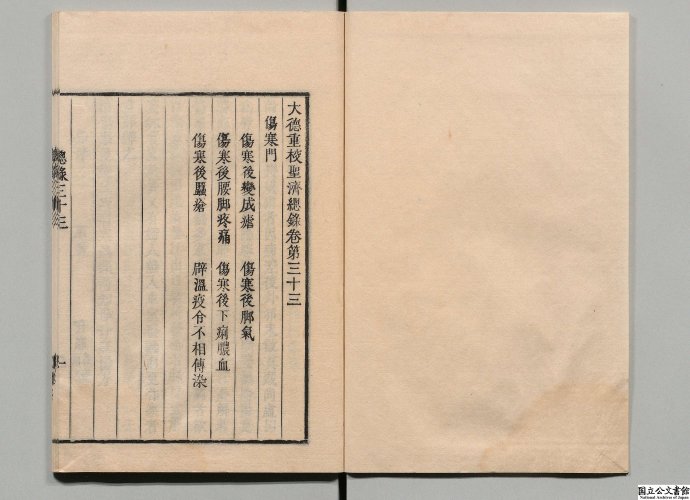 大德重校聖濟總錄卷第三十三
傷寒門
傷寒後變成瘧　傷寒後脚氣
傷寒後腰脚疼痛　傷寒後下痢膿血
傷寒後䘌瘡　辟溫疫令不相傳染
總錄三十三
一
国立公文書館
National Archives of Japan